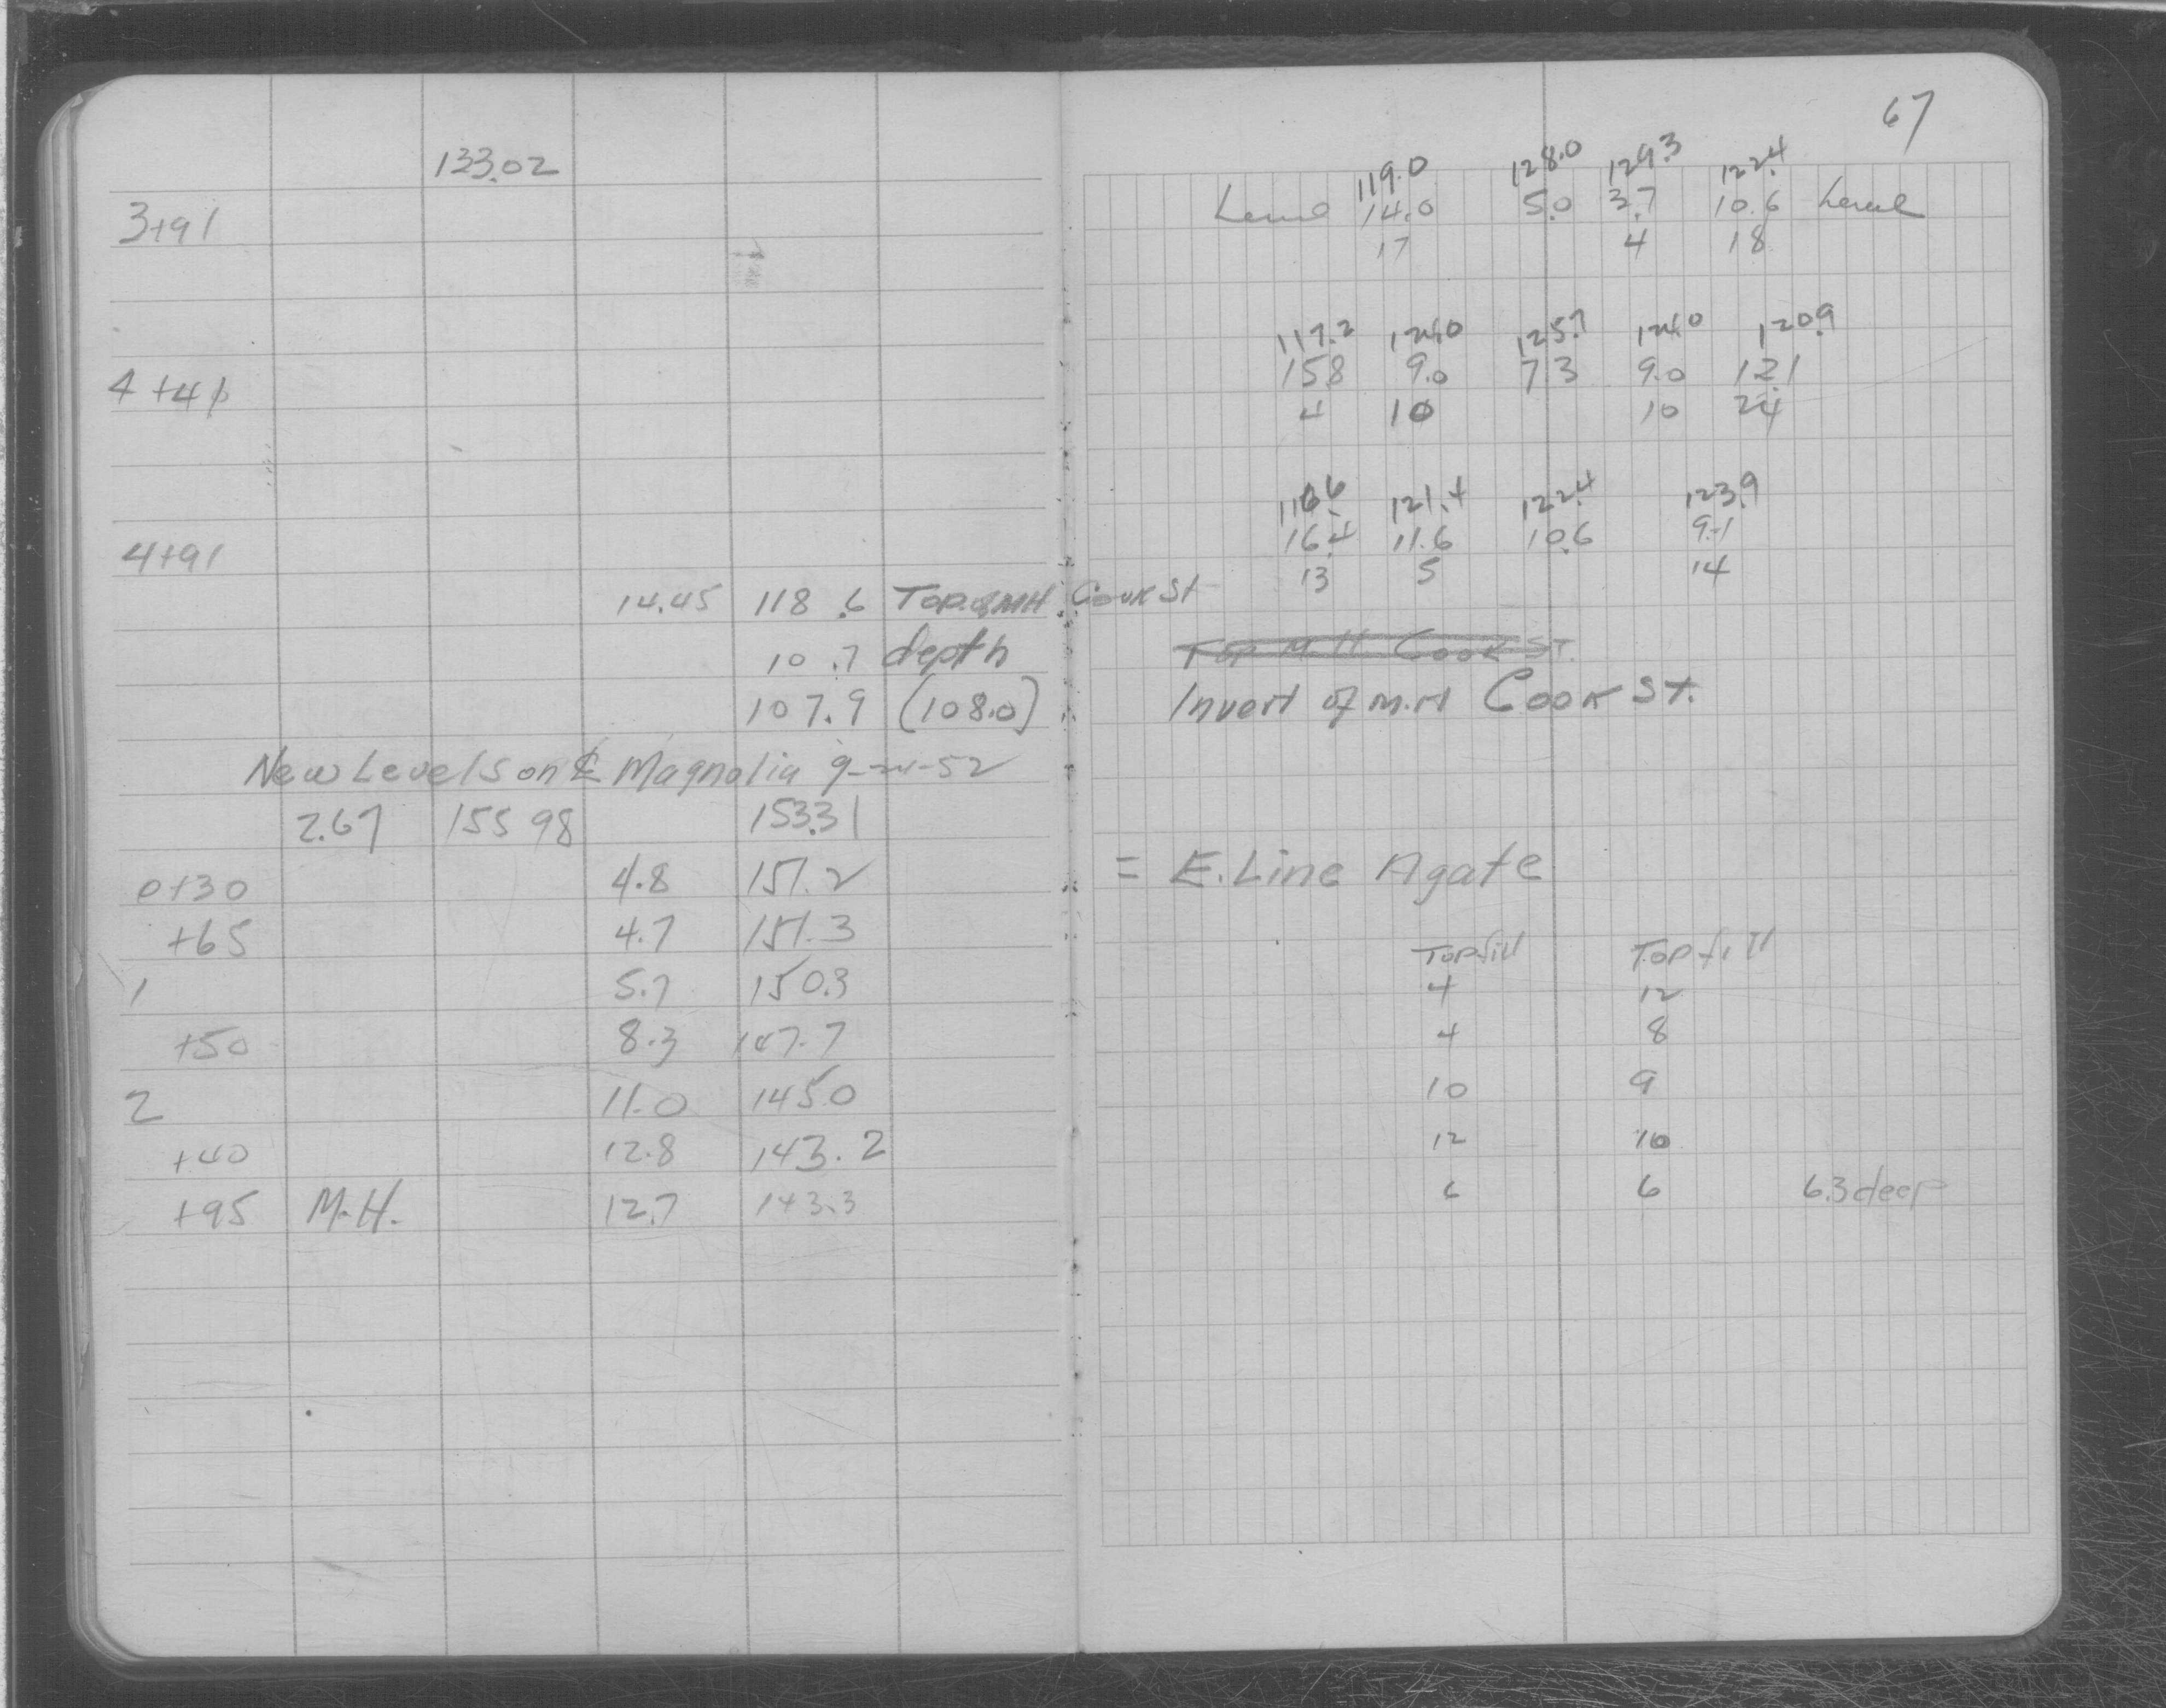 67
133.02
119.0 128.0 129.3 122.4
3+91 Level 14.0 5.0 3.7 10.6 Level
17 4 18
117.2 124.0 125.7 124.0 120.9
4+41 15.8 9.0 7.3 9.0 12.1
4 10 10 24
116.6 121.4 122.4 123.9
4+91 16.4 11.6 10.6 9.1
13 5 14
14.45 118.6 Top of MH Cook St
10.7 depth Top M.H. Cook ST.
107.9 (108.0) Invert of M.H Cook St.
New Levels on ℄ Magnolia 9-24-52
2.67 155 98 153.31
0+30 4.8 151.2 = E. Line Agate
+65 4.7 151.3 Top fill Top fill
1 5.7 150.3 4 12
+50 8.3 147.7 4 8
2 11.0 145.0 10 9
+40 12.8 143.2 12 10
+95 M.H. 12.7 143.3 6 6 6.3 deep